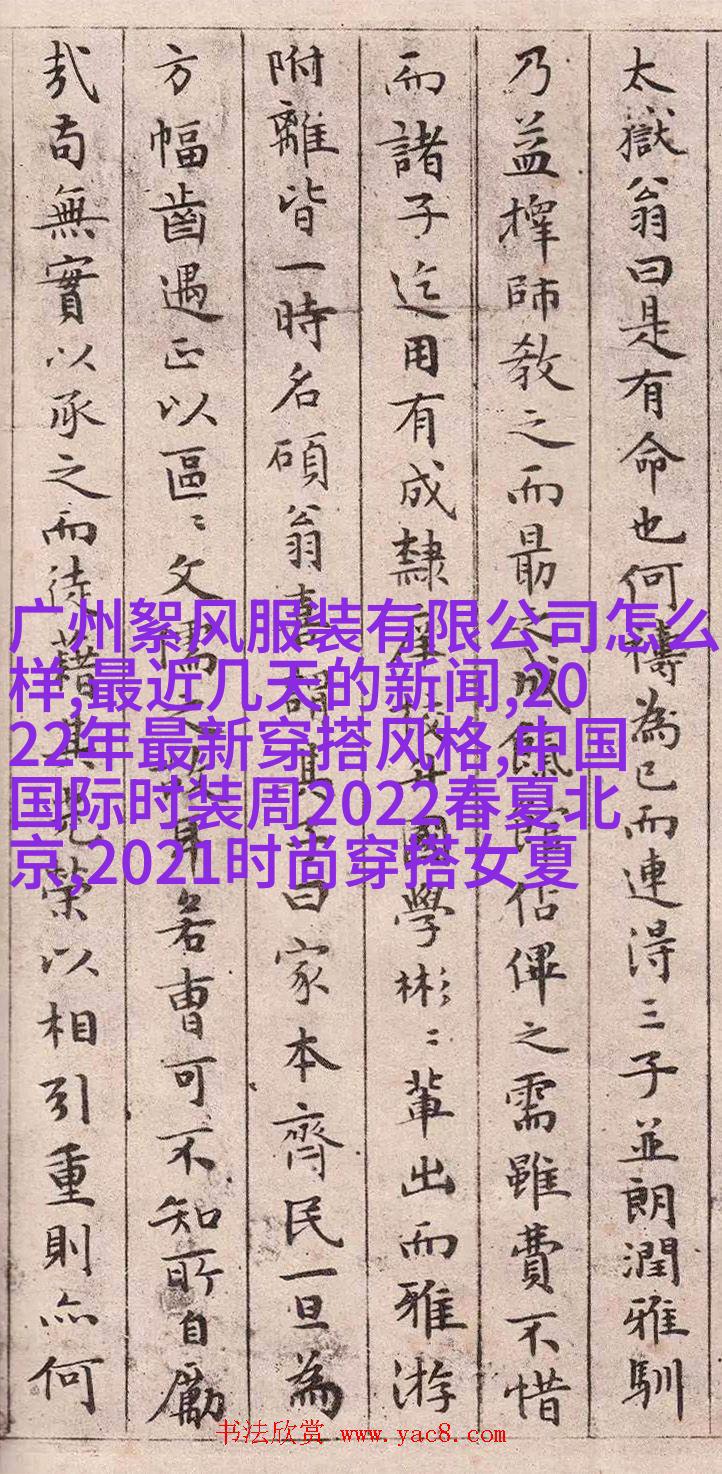 太嶽翁曰是有命也何禱為已而連得三子並朗潤雅馴
乃益擇師教之而最之成餼廩佔俾之需雖費不惜
而諸子迄用有成隸庠校升國學彬〻輩出而雅游
附離皆一時名碩翁喜謂其子曰家本齊民一旦為
方幅齒遇正以區〻文攜之故耳若曹可不知所自勵
哉苟無實以承之而徒藉其光榮以相引重則亦何
广州絮风服装有限公司怎么
样,最近几天的新闻,20
22年最新穿搭风格,中国
国际时装周2022春夏北
京,2021时尚穿搭女夏
书法欣赏 www.yac8.com